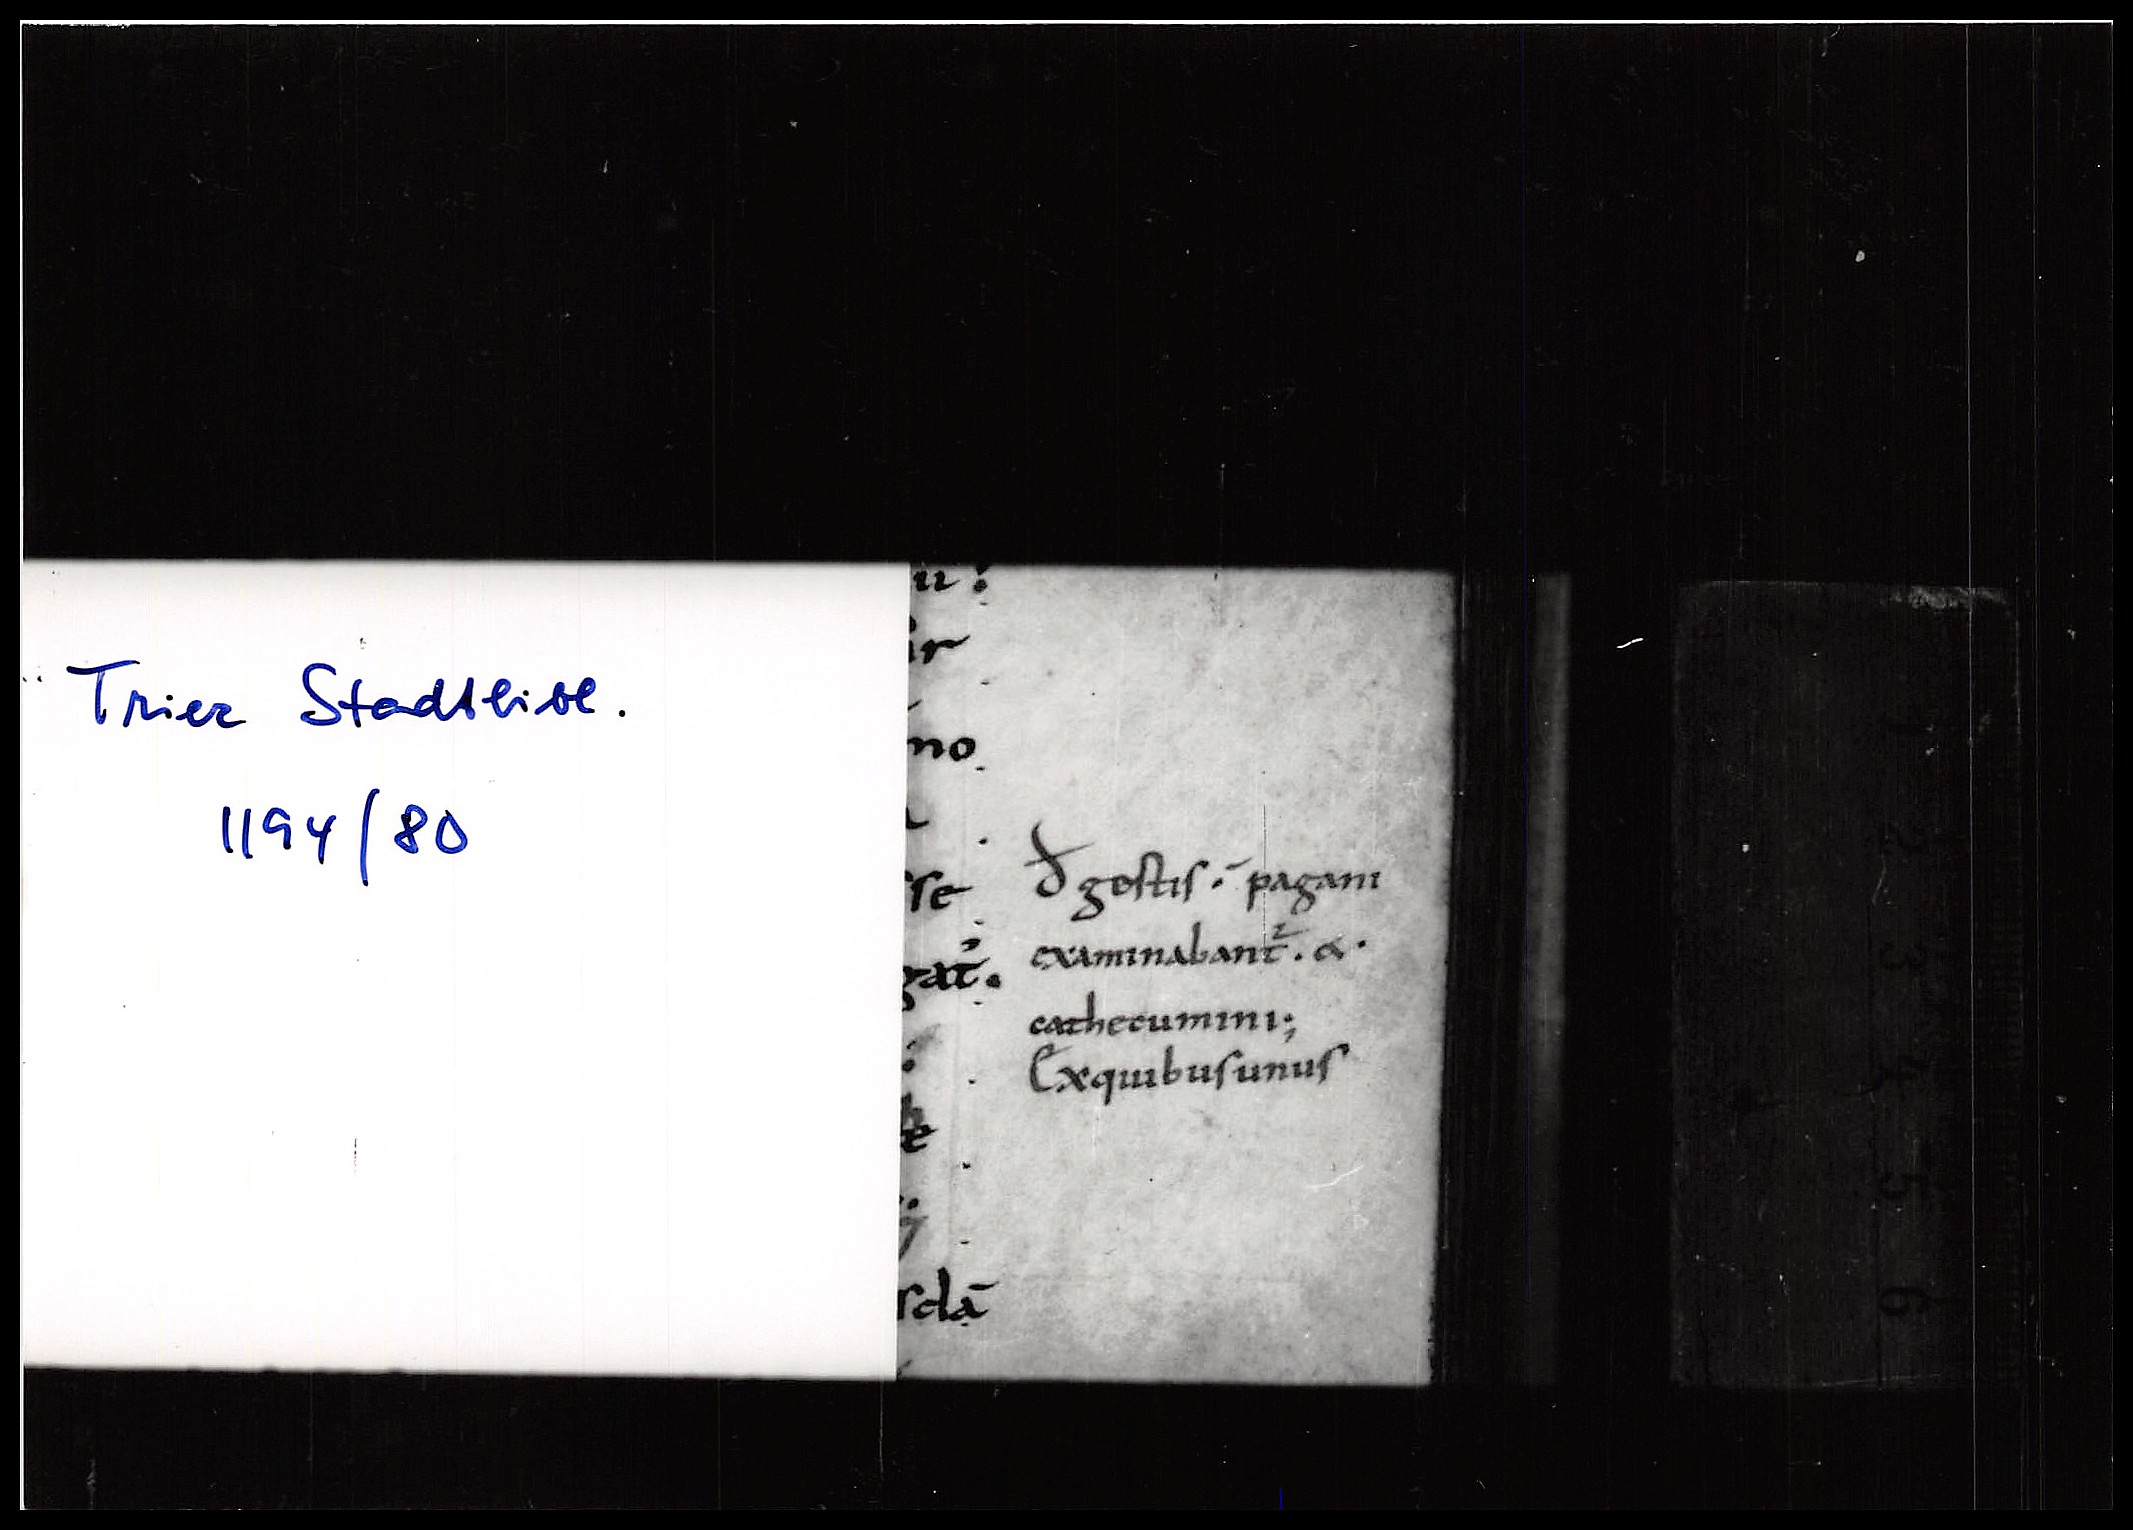 Trier Stadtbibl.
1194/80
no
sse
gat.
scla
gostis. pagani
examinabant. &.
cathecumini;
Ex quibus unus
1
2
3
4
5
6